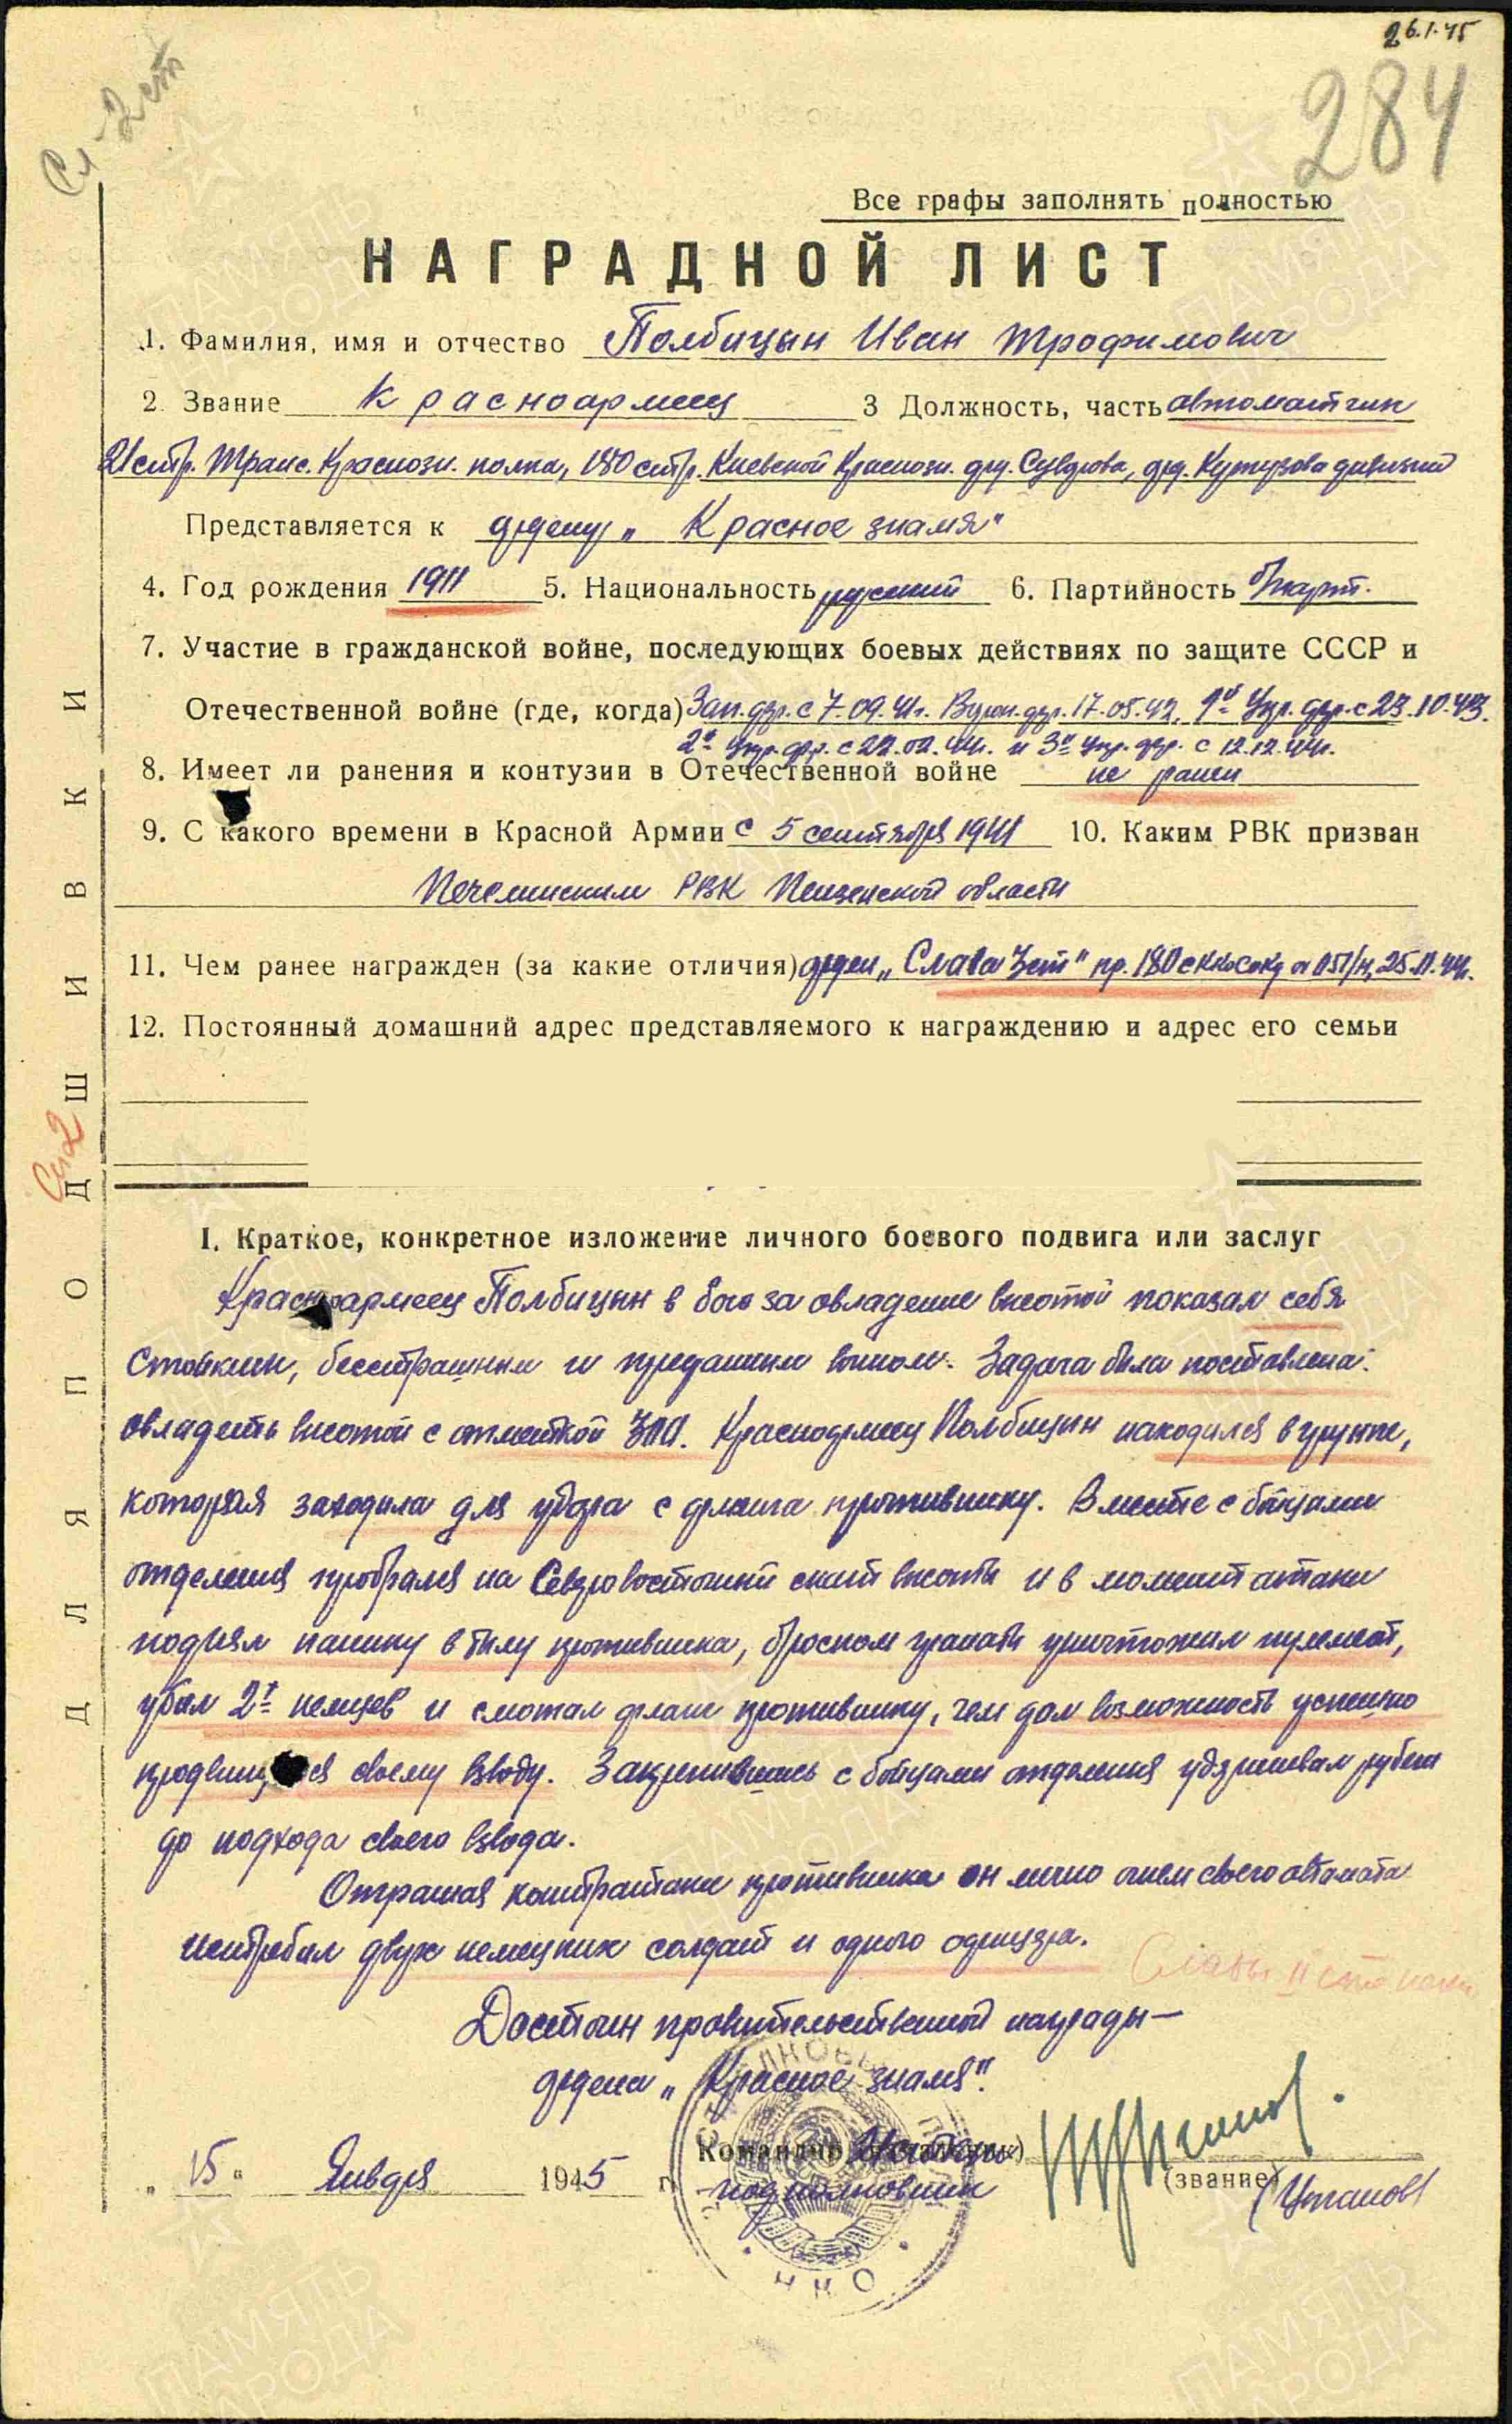 26.1.45
284
Сл-2ст
Все графы заполнять полностью
НАГРАДНОЙ ЛИСТ
1. Фамилия, имя и отчество Полбицын Иван Трофимович
2 Звание Красноармеец 3 Должность, часть автоматчик
21 стр. Транс. Краснозн. полка, 180 стр. Киевской Краснозн. орд. Суворова, орд. Кутузова дивизии
Представляется к ордену „Красное знамя"
4. Год рождения 1911 5. Национальность русский 6. Партийность б/парт.
7. Участие в гражданской войне, последующих боевых действиях по защите СССР и
Отечественной войне (где, когда) Зап. фр. с 7.09.41г. Ворон. фр. 17.05.42, 1й Укр. фр. с 23.10.43.
2й Укр. фр. с 22.02.44г. и 3й Укр. фр. с 12.12.44г.
8. Имеет ли ранения и контузии в Отечественной войне не ранен
9. С какого времени в Красной Армии с 5 сентября 1941 10. Каким РВК призван
РВК Пензенской области
11. Чем ранее награжден (за какие отличия) орден „Слава 3ст" пр. 180 25.11.44г.
12. Постоянный домашний адрес представляемого к награждению и адрес его семьи
ДЛЯ ПОДШИВКИ
Сл2
I. Краткое, конкретное изложение личного боевого подвига или заслуг
Красноармеец Полбицын в бою за овладение высотой показал себя
стойким, бесстрашным и преданным воином. Задача была поставлена:
овладеть высотой с отметкой Красноармеец Полбицын находился в группе,
которая заходила для удара с фланга противнику. Вместе с бойцами
отделения пробрался на Северовосточный скат высоты и в момент атаки
поднял панику в тылу противника, броском гранаты уничтожил пулемет,
убил 2х немцев и смотал фланг противнику, чем дал возможность успешно
продвинуться своему взводу. Закрепившись с бойцами отделения удерживал рубеж
до подхода своего взвода.
Отражая контратаки противника он лично огнем своего автомата
истребил двух немецких солдат и одного офицера.
Славы II степени
Достоин правительственной награды—
ордена „Красное знамя".
Командир
„15" Января 1945 г. подполковник (звание) (Цыганов)
НКО
ПАМЯТЬ НАРОДА